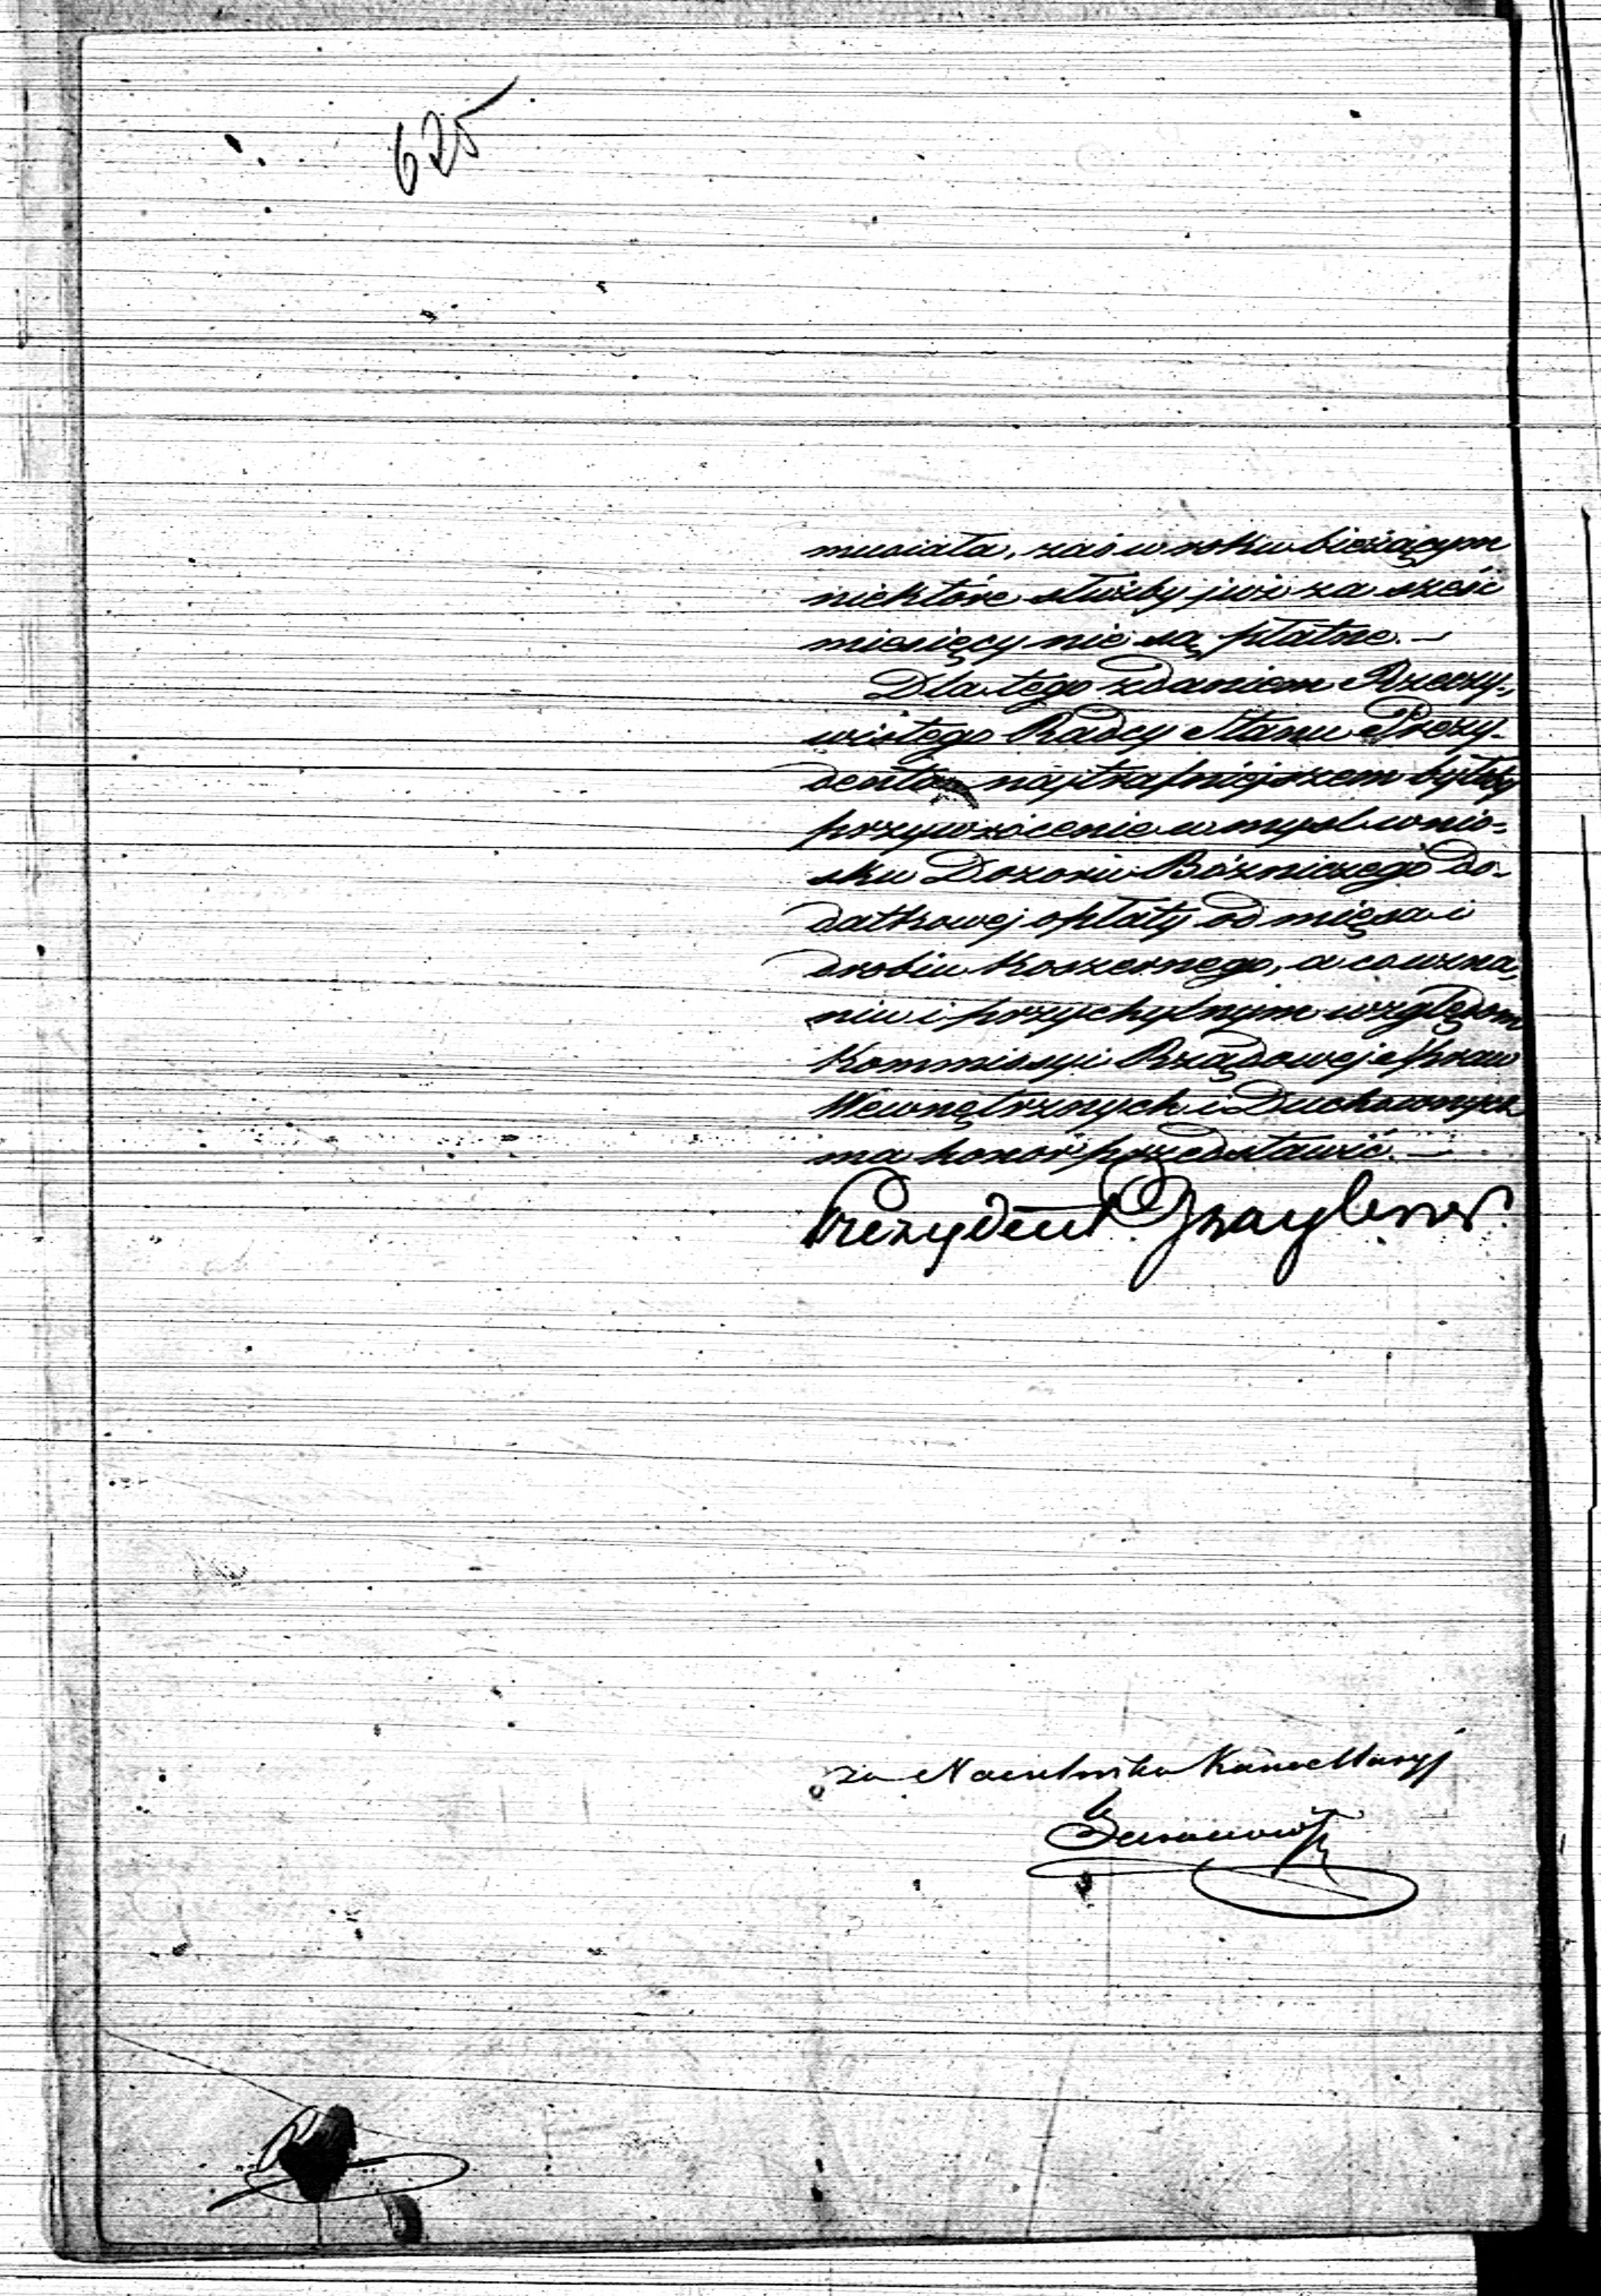 625
musiała, zaś w roku bieżącym
niektóre służby już za sześć
miesięcy nie są płatne. —
Dla tego zdaniem Rzeczy-
wistego Radcy Stanu Prezy-
denta najtrafniejszem byłoby
przywrócenie w myśl wnio-
sku Dozoru Bóżniczego do-
datkowej opłaty od mięsa i
drobiu koszernego, a co uzna-
niu i przychylnym względom
Kommissyi Rządowej Spraw
Wewnętrznych i Duchownych
ma honor przedstawić. —
Prezydent
za Naczelnika Kancellaryj